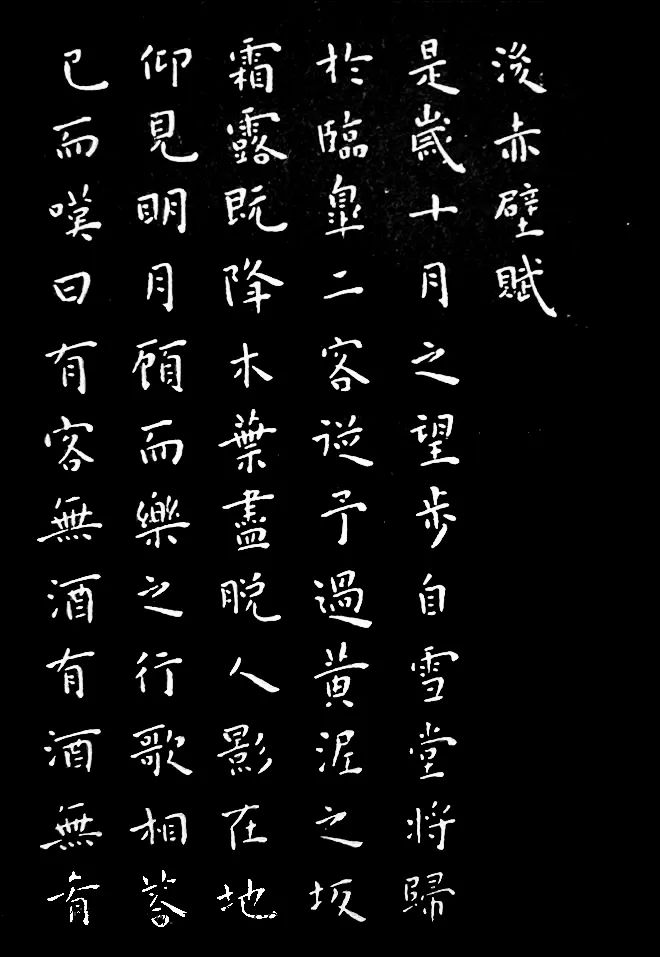 後赤壁賦
是歲十月之望步自雪堂將歸
於臨皋二客從予過黃泥之坂
霜露既降木葉盡脫人影在地
仰見明月顧而樂之行歌相答
已而嘆曰有客無酒有酒無肴